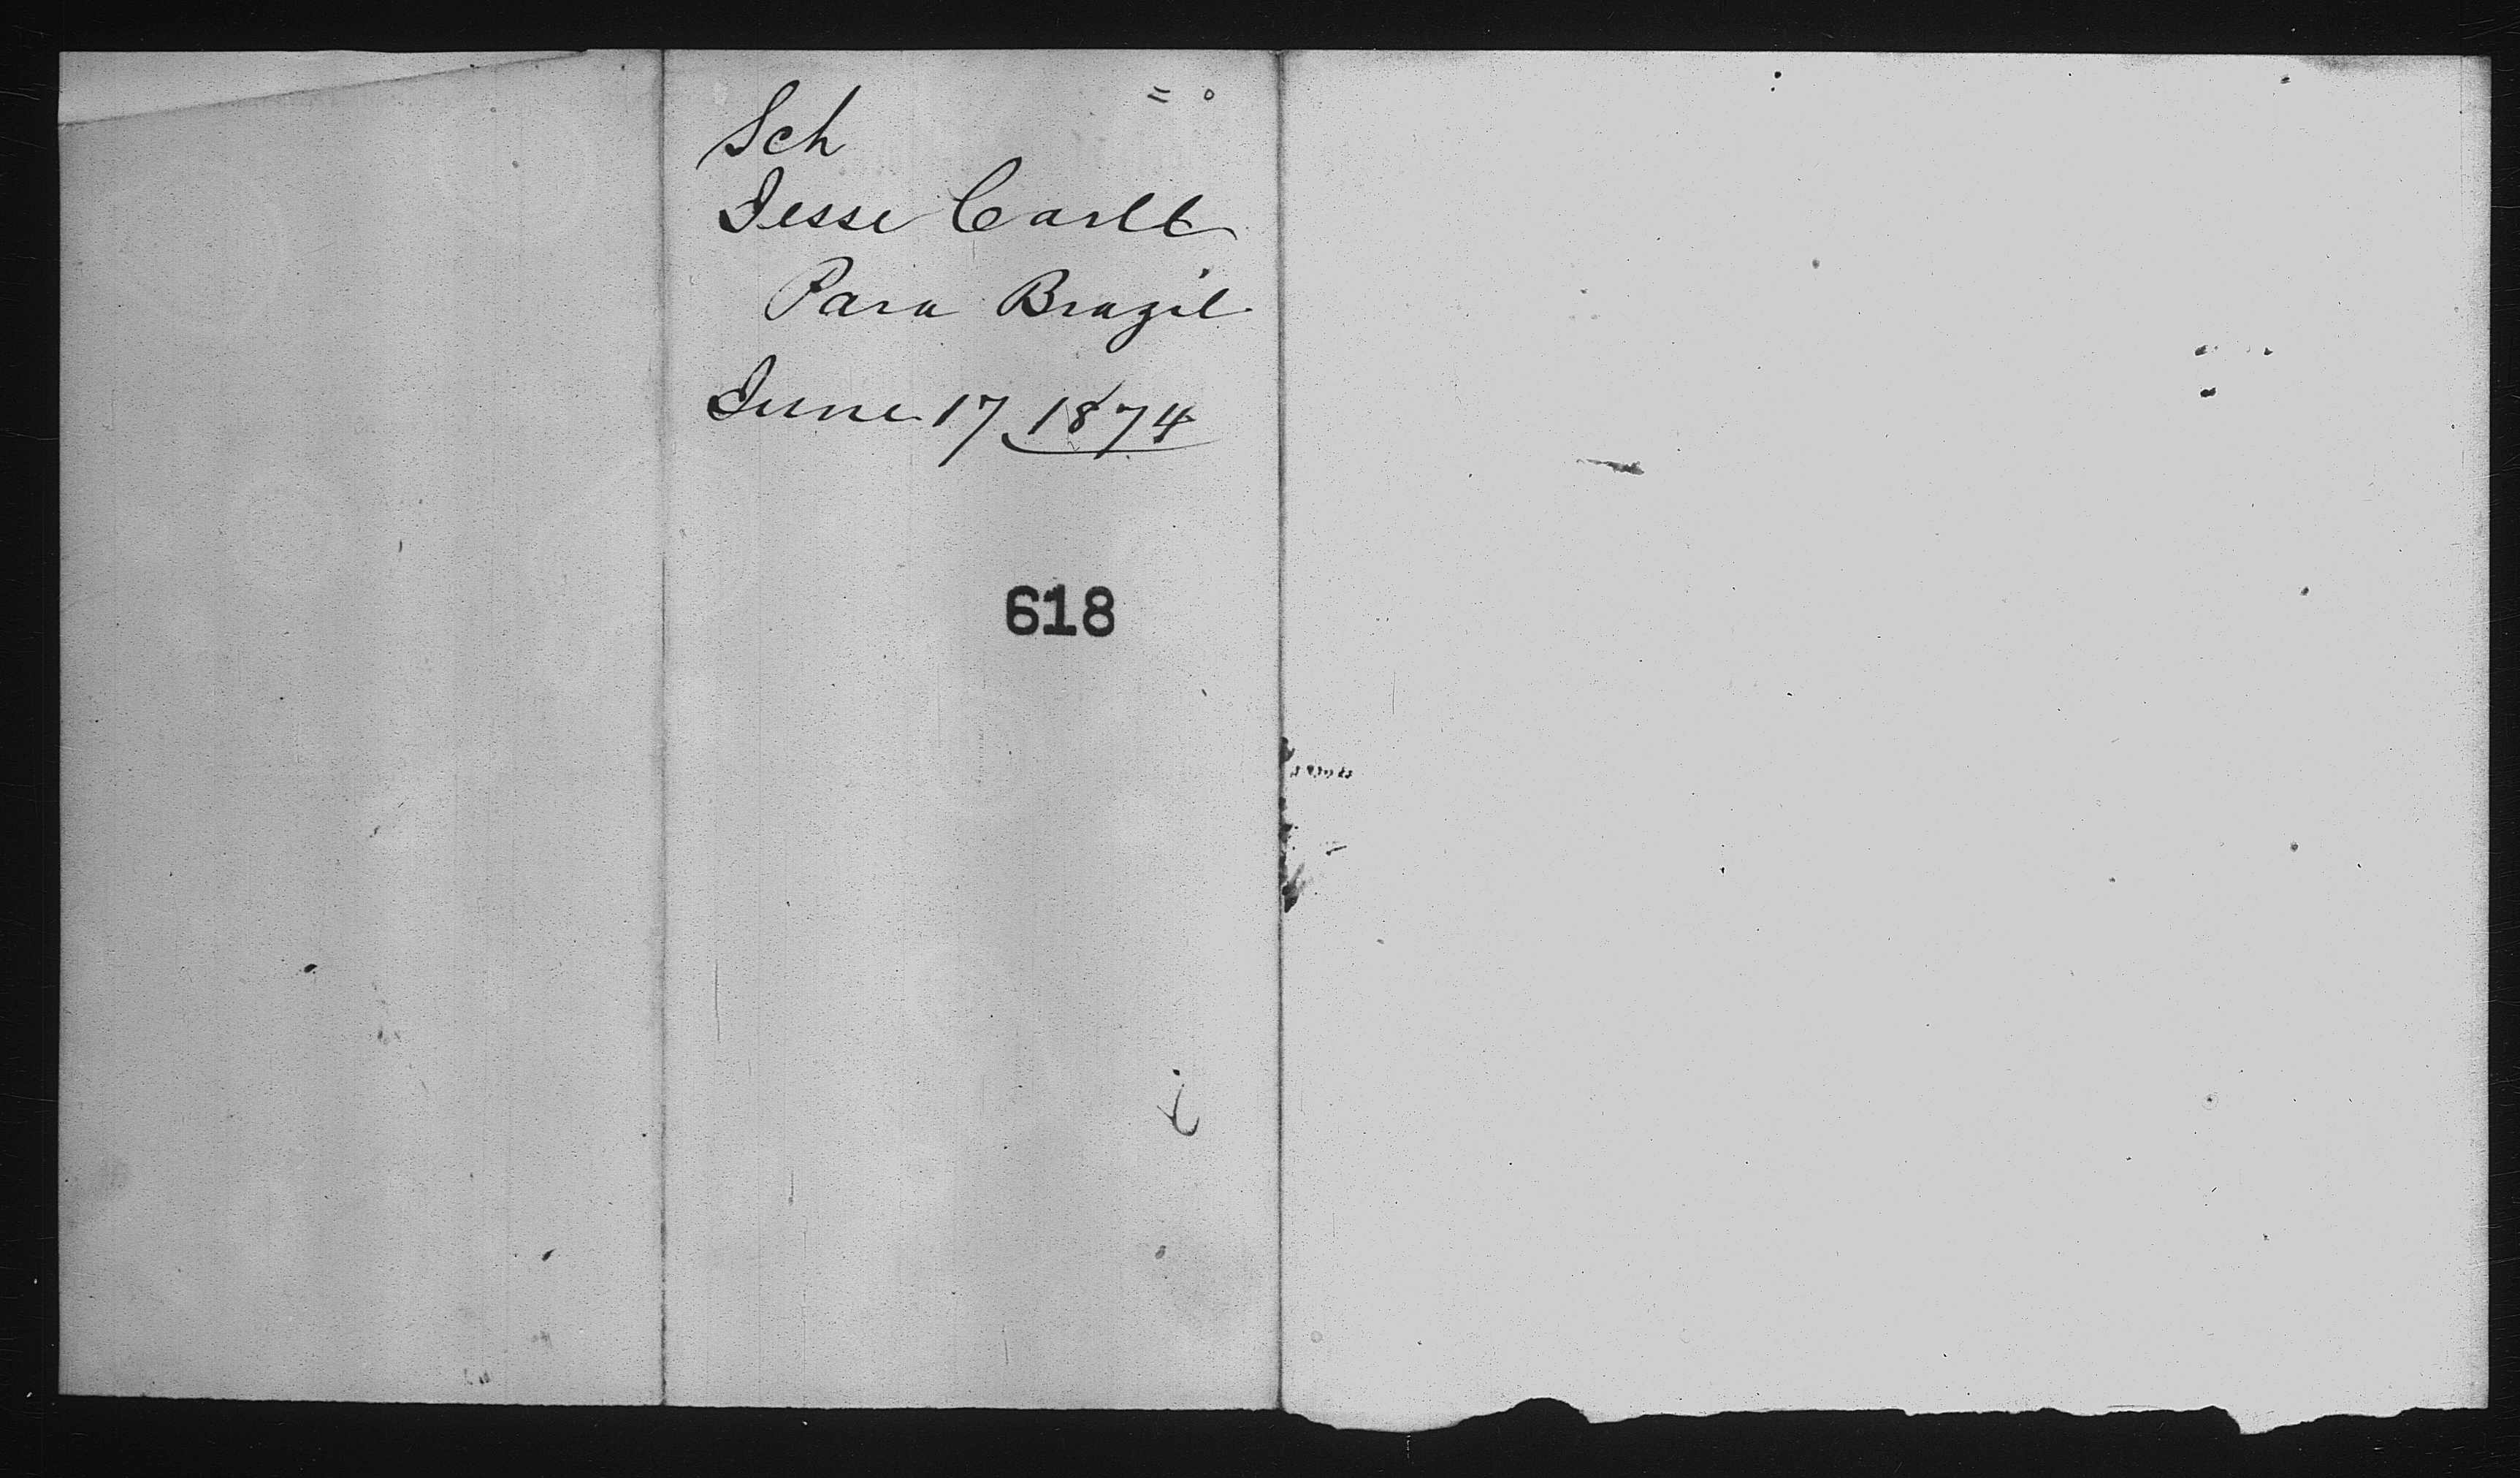 Sch
Jesse Carll
Para Brazil
June 17 1874
618